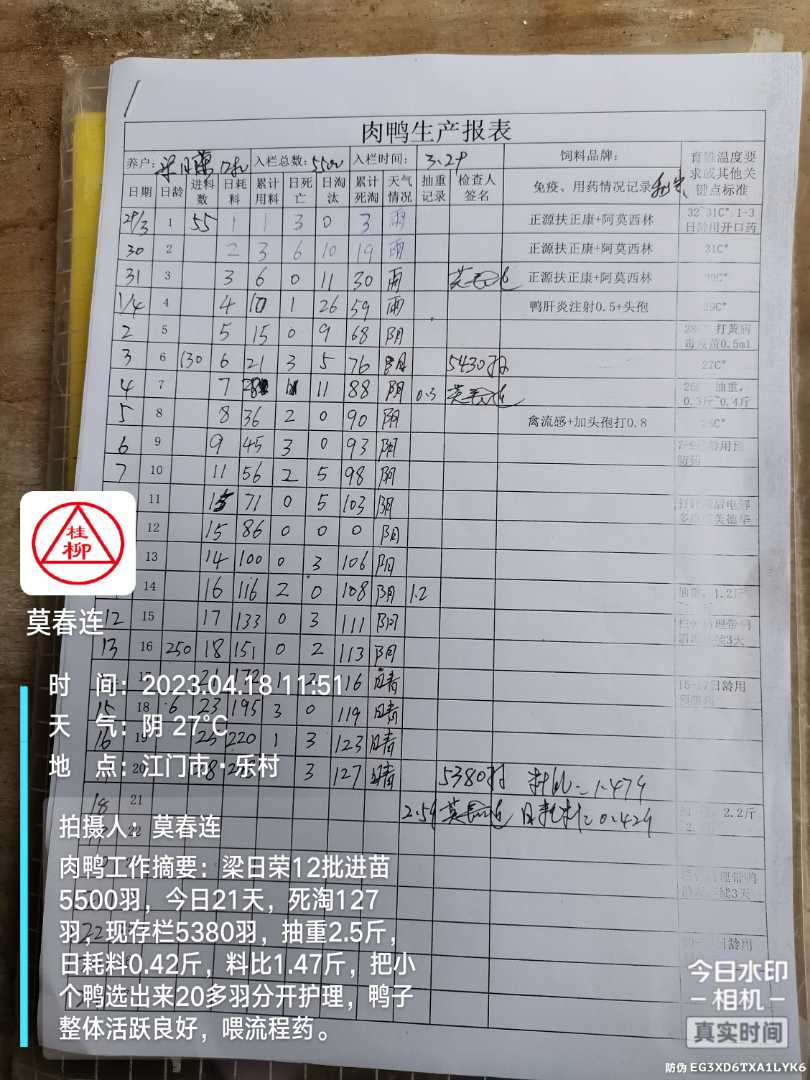 肉鸭生产报表
养户: 入栏总数: 5500 入栏时间: 3.29 饲料品牌: 育雏温度要求或其他关键点标准
日期 日龄 进料数 日耗料 累计用料 日死亡 日淘汰 累计死淘 天气情况 抽重记录 检查人签名 免疫、用药情况记录
29/3 1 55 1 1 3 0 3 雨 正源扶正康+阿莫西林 32~31C° 1-3日龄用开口药
30 2 2 3 6 10 19 雨 正源扶正康+阿莫西林 31C°
31 3 3 6 0 11 30 雨 莫春连 正源扶正康+阿莫西林 30C°
1/4 4 4 10 1 26 59 雨 鸭肝炎注射0.5+头孢 29C°
2 5 5 15 0 9 68 阴 打黄病毒疫苗0.5ml
3 6 130 6 21 3 5 76 阴 5430羽 27C°
4 7 7 11 88 阴 0.3 莫春连 抽重, 0.3斤~0.4斤
5 8 8 36 2 0 90 阴 禽流感+加头孢打0.8
6 9 9 45 3 0 93 阴
7 10 11 56 2 5 98 阴
11 15 71 0 5 103 阴
12 15 86 0 0 0 阴
13 14 100 0 3 106 阴
14 16 116 2 0 108 阴 1.2 1.2斤
12 15 17 133 0 3 111 阴
13 16 250 18 151 0 2 113 阴
17 21 172 1 116 晴 15-17日龄用
15 18 23 195 3 0 119 晴
16 19 25 220 1 3 123 晴
20 3 127 晴 5380羽 料比=1.479
18 21 2.59 莫春连 日耗料=0.429 2.2斤
22
桂柳
莫春连
时 间: 2023.04.18 11:51
天 气: 阴 27℃
地 点: 江门市·乐村
拍摄人: 莫春连
肉鸭工作摘要: 梁日荣12批进苗
5500羽，今日21天，死淘127
羽，现存栏5380羽，抽重2.5斤，
日耗料0.42斤，料比1.47斤，把小
个鸭选出来20多羽分开护理，鸭子
整体活跃良好，喂流程药。
今日水印
-相机-
真实时间
防伪 EG3XD6TXA1LYK6